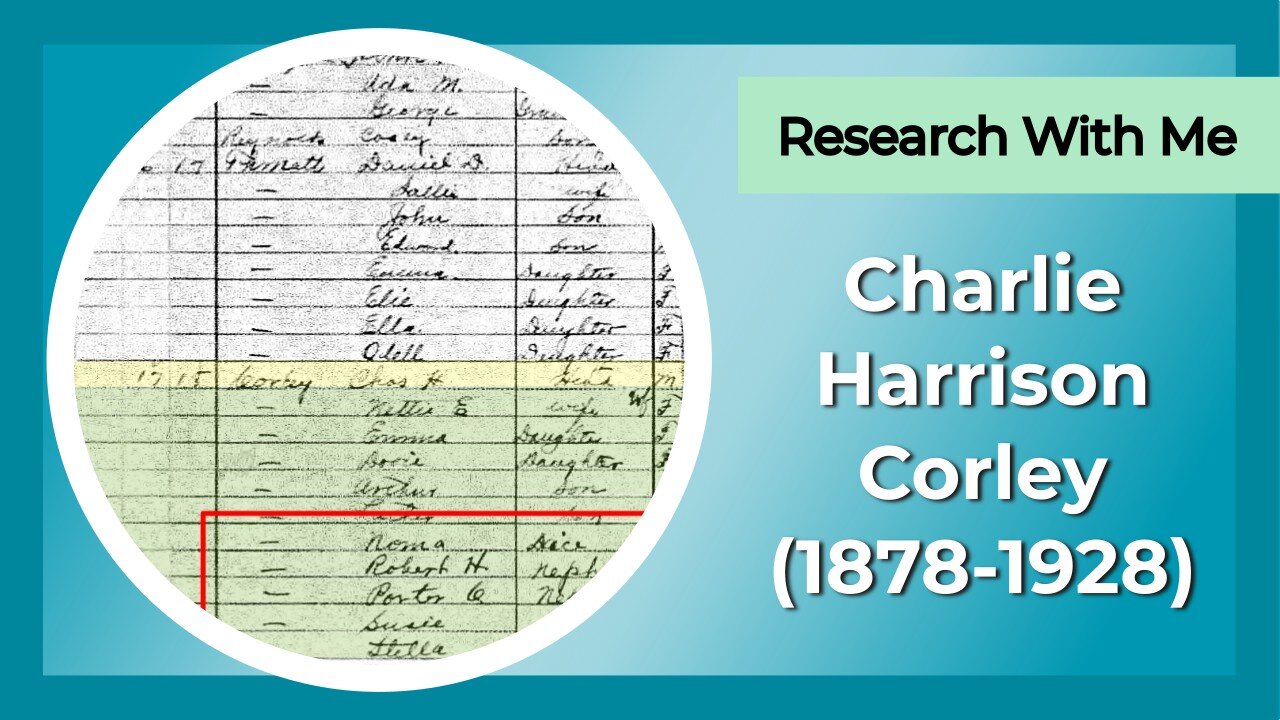 Ada M.
George
Reynolds Casey Son
17 Daniel D. Head
— Sallie wife
— John Son
— Edward Son
— Emma Daughter F
— Elie Daughter F
— Ella Daughter F
— Odell Daughter F
17 15 Corley Chas H Head M
— Nettie E wife F
— Emma Daughter F
— Dovie Daughter F
— Arthur Son
— Son
— Noma Niece
— Robert H Neph
— Porter C Ne
— Susie
Stella
Research With Me
Charlie
Harrison
Corley
(1878-1928)